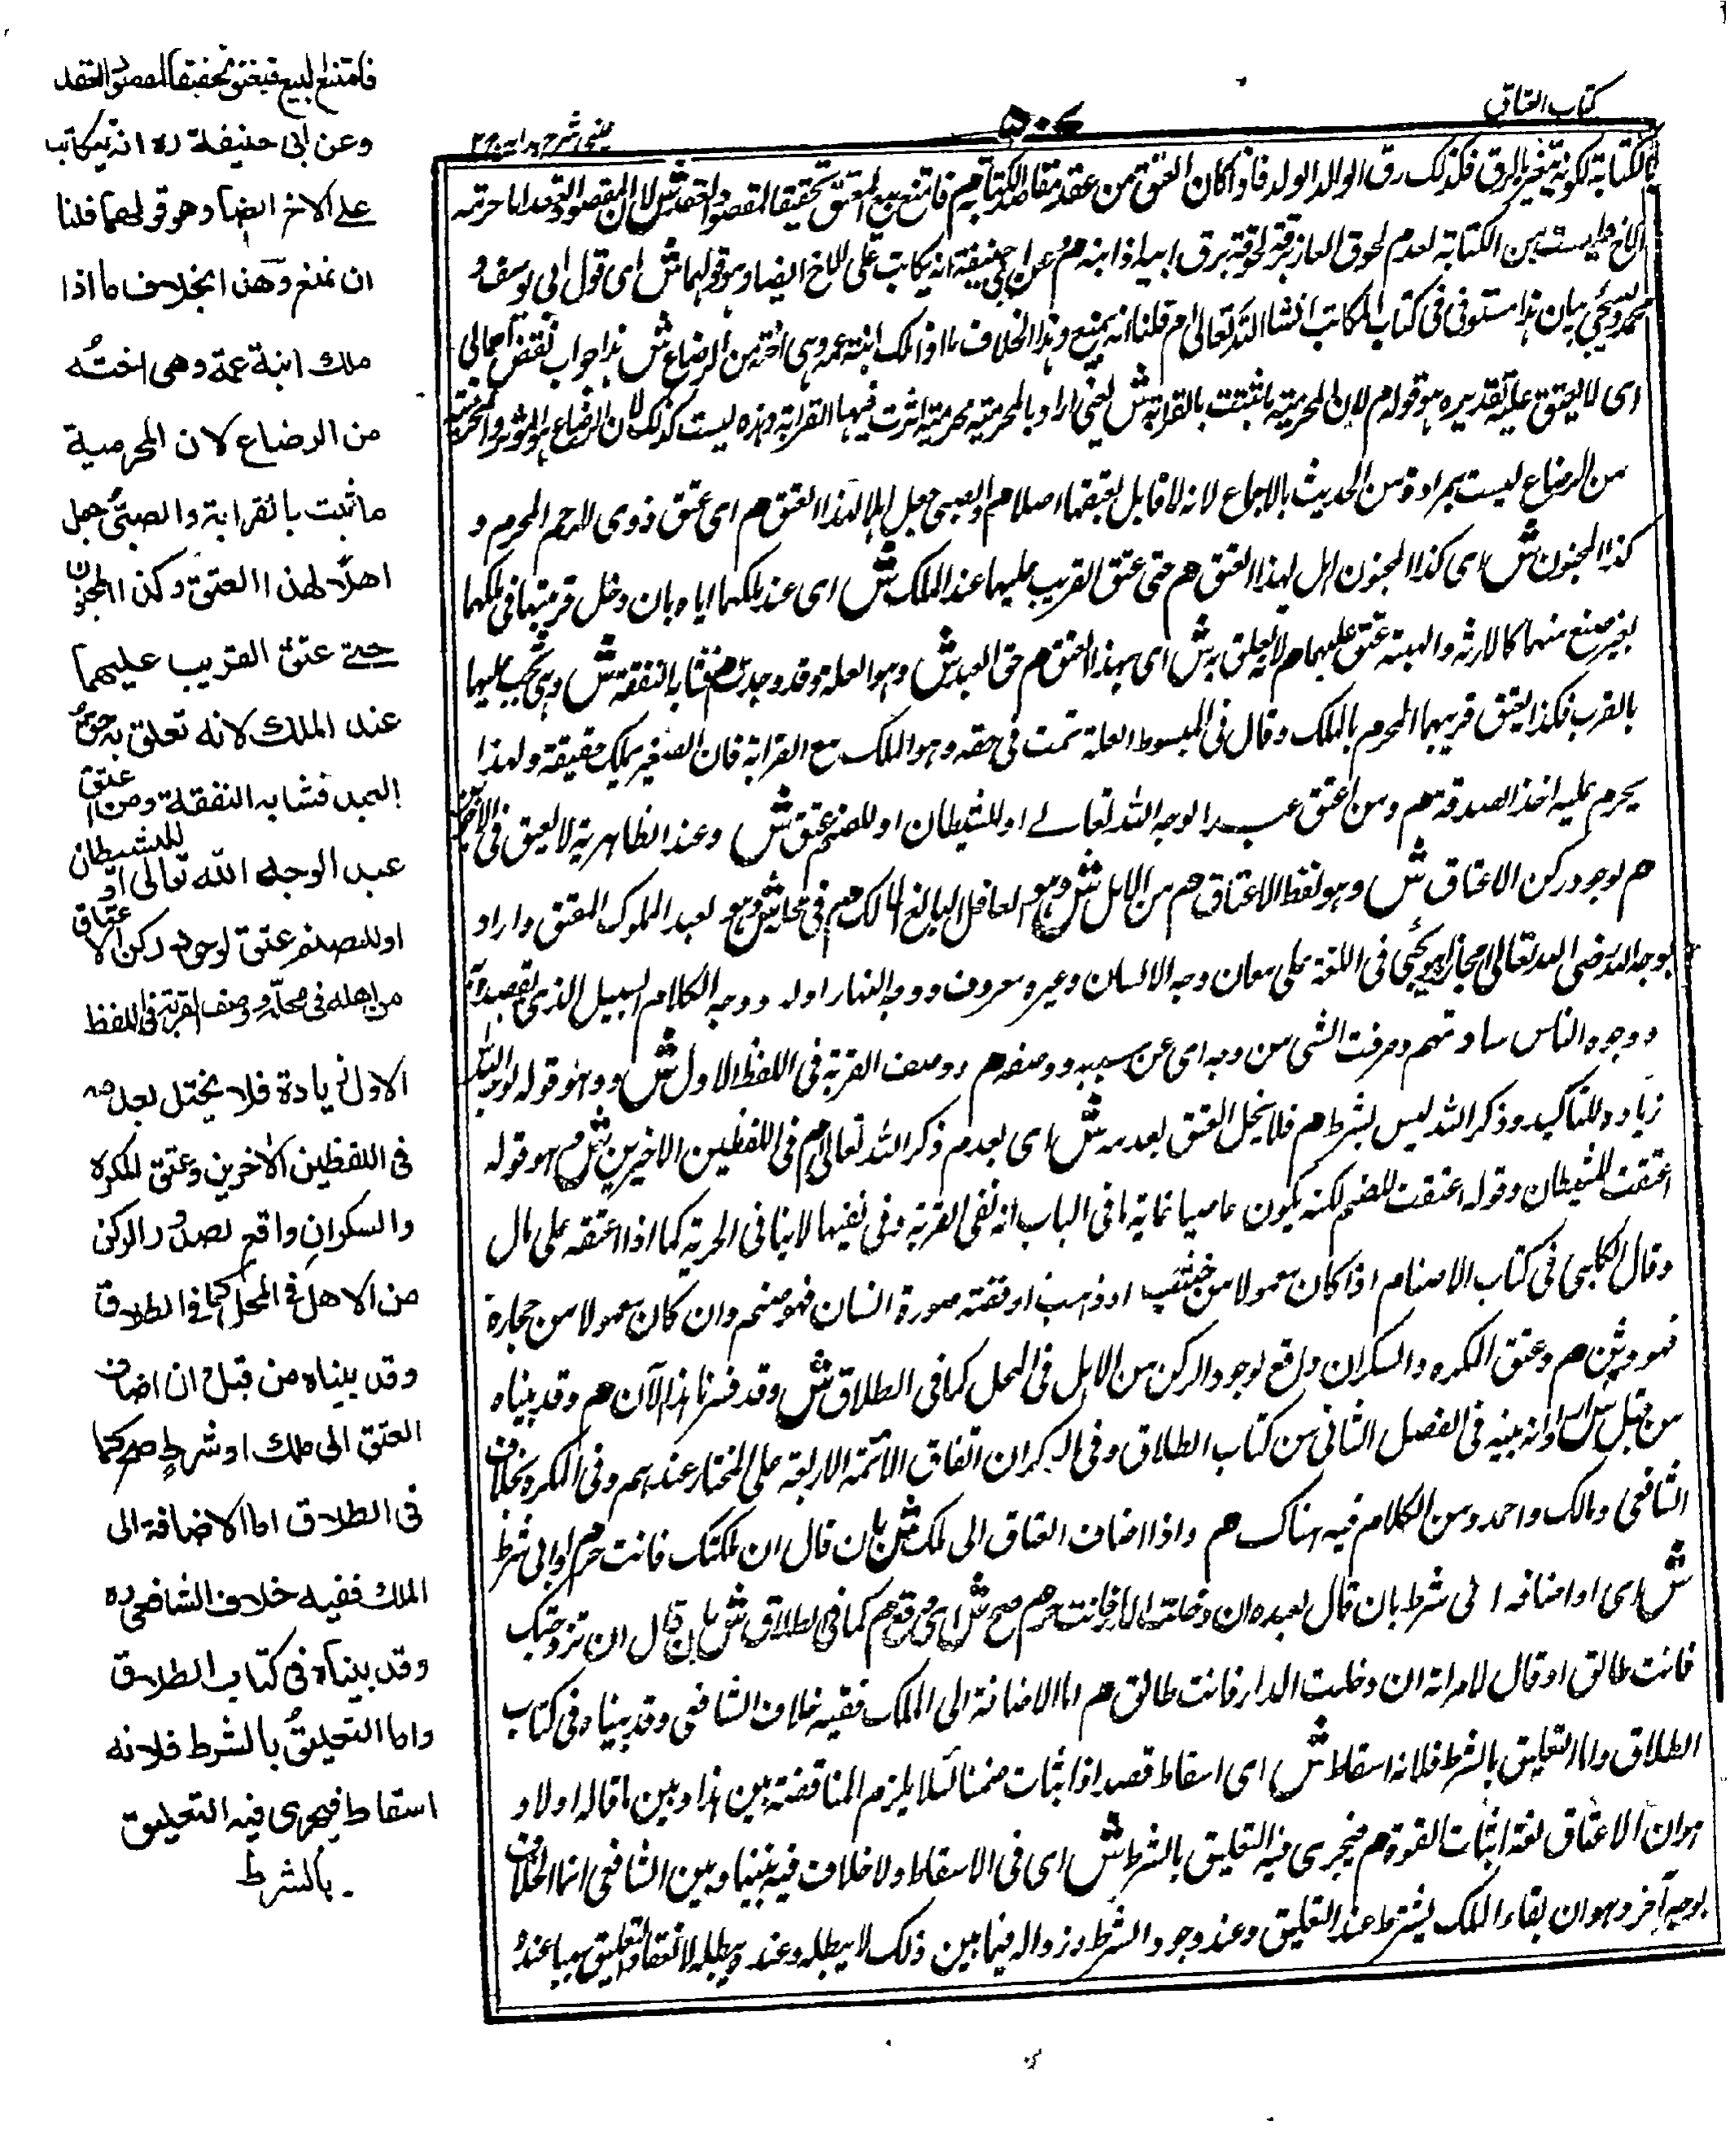 كتاب العتاق
٥٠٧
عينى شرح هداية ج٢
بالكتابة لكونه يتغير بالرق فكذلك رق الوالد الولد فاذا كان العتق من عقد مقاصد الكتابة هم فامتنع بيع المعتق تحقيقا لمقصود العقد ش لان المقصود اما حرية
الاخ فليست من الكتابة لعدم لحوق العار برقه لحوقه برق ابيه اذ ابنه هم وعن ابى حنيفة انه يكاتب على الاخ ايضا وهو قولهما ش اى قول ابى يوسف و
محمد وسيجئ بيان هذا مستوفى فى كتاب المكاتب انشاء الله تعالى هم قلنا انه يمنع وهذا بخلاف ما اذا ملك ابنة عمه وهى اخته من الرضاع ش هذا جواب نقض اجمالى
اى لا يعتق عليه تقديره هو قوله هم لان المحرمية ما ثبتت بالقرابة ش يعنى اراد بالمحرمية محرمية اثرت فيها القرابة وهذه ليست كذلك لان الرضاع هو المؤثر والمحرمية
من الرضاع ليست بمرادة من الحديث بالاجماع لانه لا قائل بعتقها اصلا هم والصبى جعل اهلا لهذا العتق هم اى عتق ذوى الرحم المحرم و
كذا المجنون ش اى كذا المجنون اهل لهذا العتق هم حتى عتق القريب عليهما عند الملك ش اى عند ملكهما اياه بان دخل قريبهما فى ملكهما
بغير صنع منهما كالارث والهبة عتق عليهما هم لانه تعلق به ش اى بهذا العتق هم حق العبد ش وهو العلة وقد وجدت هم فشابه النفقة ش وهى تجب عليهما
بالقرب فكذا يعتق قريبهما المحرم بالملك وقال فى المبسوط العلة تمت فى حقه وهو الملك مع القرابة فان الصغير يملك حقيقة ولهذا
يحرم عليه اخذ الصدقة هم ومن اعتق عبدا لوجه الله تعالى او للشيطان او للصنم عتق ش وعند الظاهرية لا يعتق فى الاخيرين
هم لوجود ركن الاعتاق ش وهو لفظ الاعتاق هم من الاهل ش وهو العاقل البالغ المالك هم فى محله ش وهو العبد المملوك المعتق واراد
بوجه الله رضى الله تعالى مجازا ويجئ فى اللغة على معان وجه الانسان وغيره معروف ووجه النهار اوله ووجه الكلام السبيل الذى تقصده
ووجوه الناس ساداتهم وعرفت الشئ من وجه اى عن سببه ووصفه هم ووصف القربة فى اللفظ الاول ش وهو قوله لوجه الله
زيادة للتاكيد وذكر الله ليس بشرط هم فلا يختل العتق بعدمه ش اى بعدم ذكر الله تعالى هم فى اللفظين الاخيرين ش وهو قوله
اعتقت للشيطان وقوله اعتقت للصنم لكنه يكون عاصيا غاية ما فى الباب انه نفى القربة وفى نفيها لا ينافى الحرية كما اذا اعتقه على مال
وقال الكلبى فى كتاب الاصنام اذا كان معمولا من خشب او ذهب او فضة صورة انسان فهو صنم وان كان معمولا من حجارة
فهو وثن هم وعتق المكره والسكران واقع لوجود الركن من الاهل فى المحل كما فى الطلاق ش وقد فسرنا هذا الآن هم وقد بيناه
من قبل ش اى انه بينه فى الفصل الثانى من كتاب الطلاق وفى السكران اتفاق الائمة الاربعة على المختار عندهم وفى المكره بخلاف
الشافعى ومالك واحمد ومن الكلام فيه هناك هم واذا اضاف العتاق الى ملك ش بان قال ان ملكتك فانت حر هم او الى شرط
ش اى او اضافه الى شرط بان قال لعبده ان دخلت الدار فانت حر هم صح ش اى وقع هم كما فى الطلاق ش بان قال ان تزوجتك
فانت طالق او قال لامراته ان دخلت الدار فانت طالق هم اما الاضافة الى الملك ففيه خلاف الشافعى وقد بيناه فى كتاب
الطلاق واما التعليق بالشرط فلانه اسقاط ش اى اسقاط قصدا اذ اثبات ضمنا لئلا يلزم المناقضة بين هذا وبين ما قاله اولا و
هو ان الاعتاق لغة اثبات القوة هم فيجرى فيه التعليق بالشرط ش اى فى الاسقاط ولا خلاف فيه بيننا وبين الشافعى انما الخلاف
بوجه آخر وهو ان بقاء الملك يشترط عند التعليق وعند وجود الشرط وزواله فيما بين ذلك لا يبطله وعنده يبطله لانعقاد التعليق سببا عنده
فامتنع البيع فيعتق تحقيقا لمقصود العقد
وعن ابى حنيفة ره انه يتكاتب
على الاخ ايضا وهو قولهما فلنا
ان نمنع وهذا بخلاف ما اذا
ملك ابنة عمه وهى اخته
من الرضاع لان المحرمية
ما ثبت بالقرابة والصبى جعل
اهلا لهذا العتق وكذا المجنون
حتى عتق القريب عليهما
عند الملك لانه تعلق به حق
العبد فشابه النفقة ومن اعتق
عبدا لوجه الله تعالى او للشيطان
او للصنم عتق لوجود ركن الاعتاق
من اهله فى محله ووصف القربة فى اللفظ
الاول زيادة فلا يختل بعدمه
فى اللفظين الاخرين وعتق المكره
والسكران واقع لصدور الركن
من الاهل فى المحل كما فى الطلاق
وقد بيناه من قبل ان اضاف
العتق الى ملك او شرط صح كما
فى الطلاق اما الاضافة الى
الملك ففيه خلاف الشافعى ره
وقد بيناه فى كتاب الطلاق
واما التعليق بالشرط فلانه
اسقاط فيجرى فيه التعليق
بالشرط